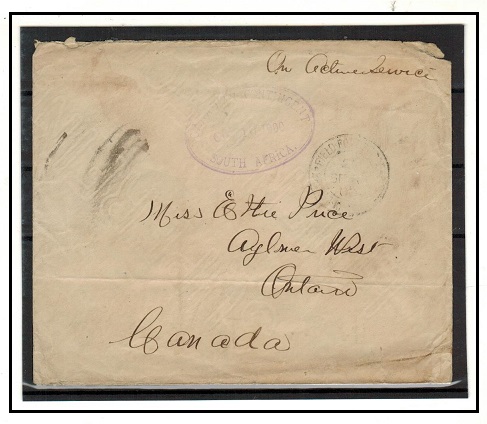 On Active Service
SOUTH AFRICA.
FIELD
Miss Ettie Price
Aylmer West
Ontario
Canada